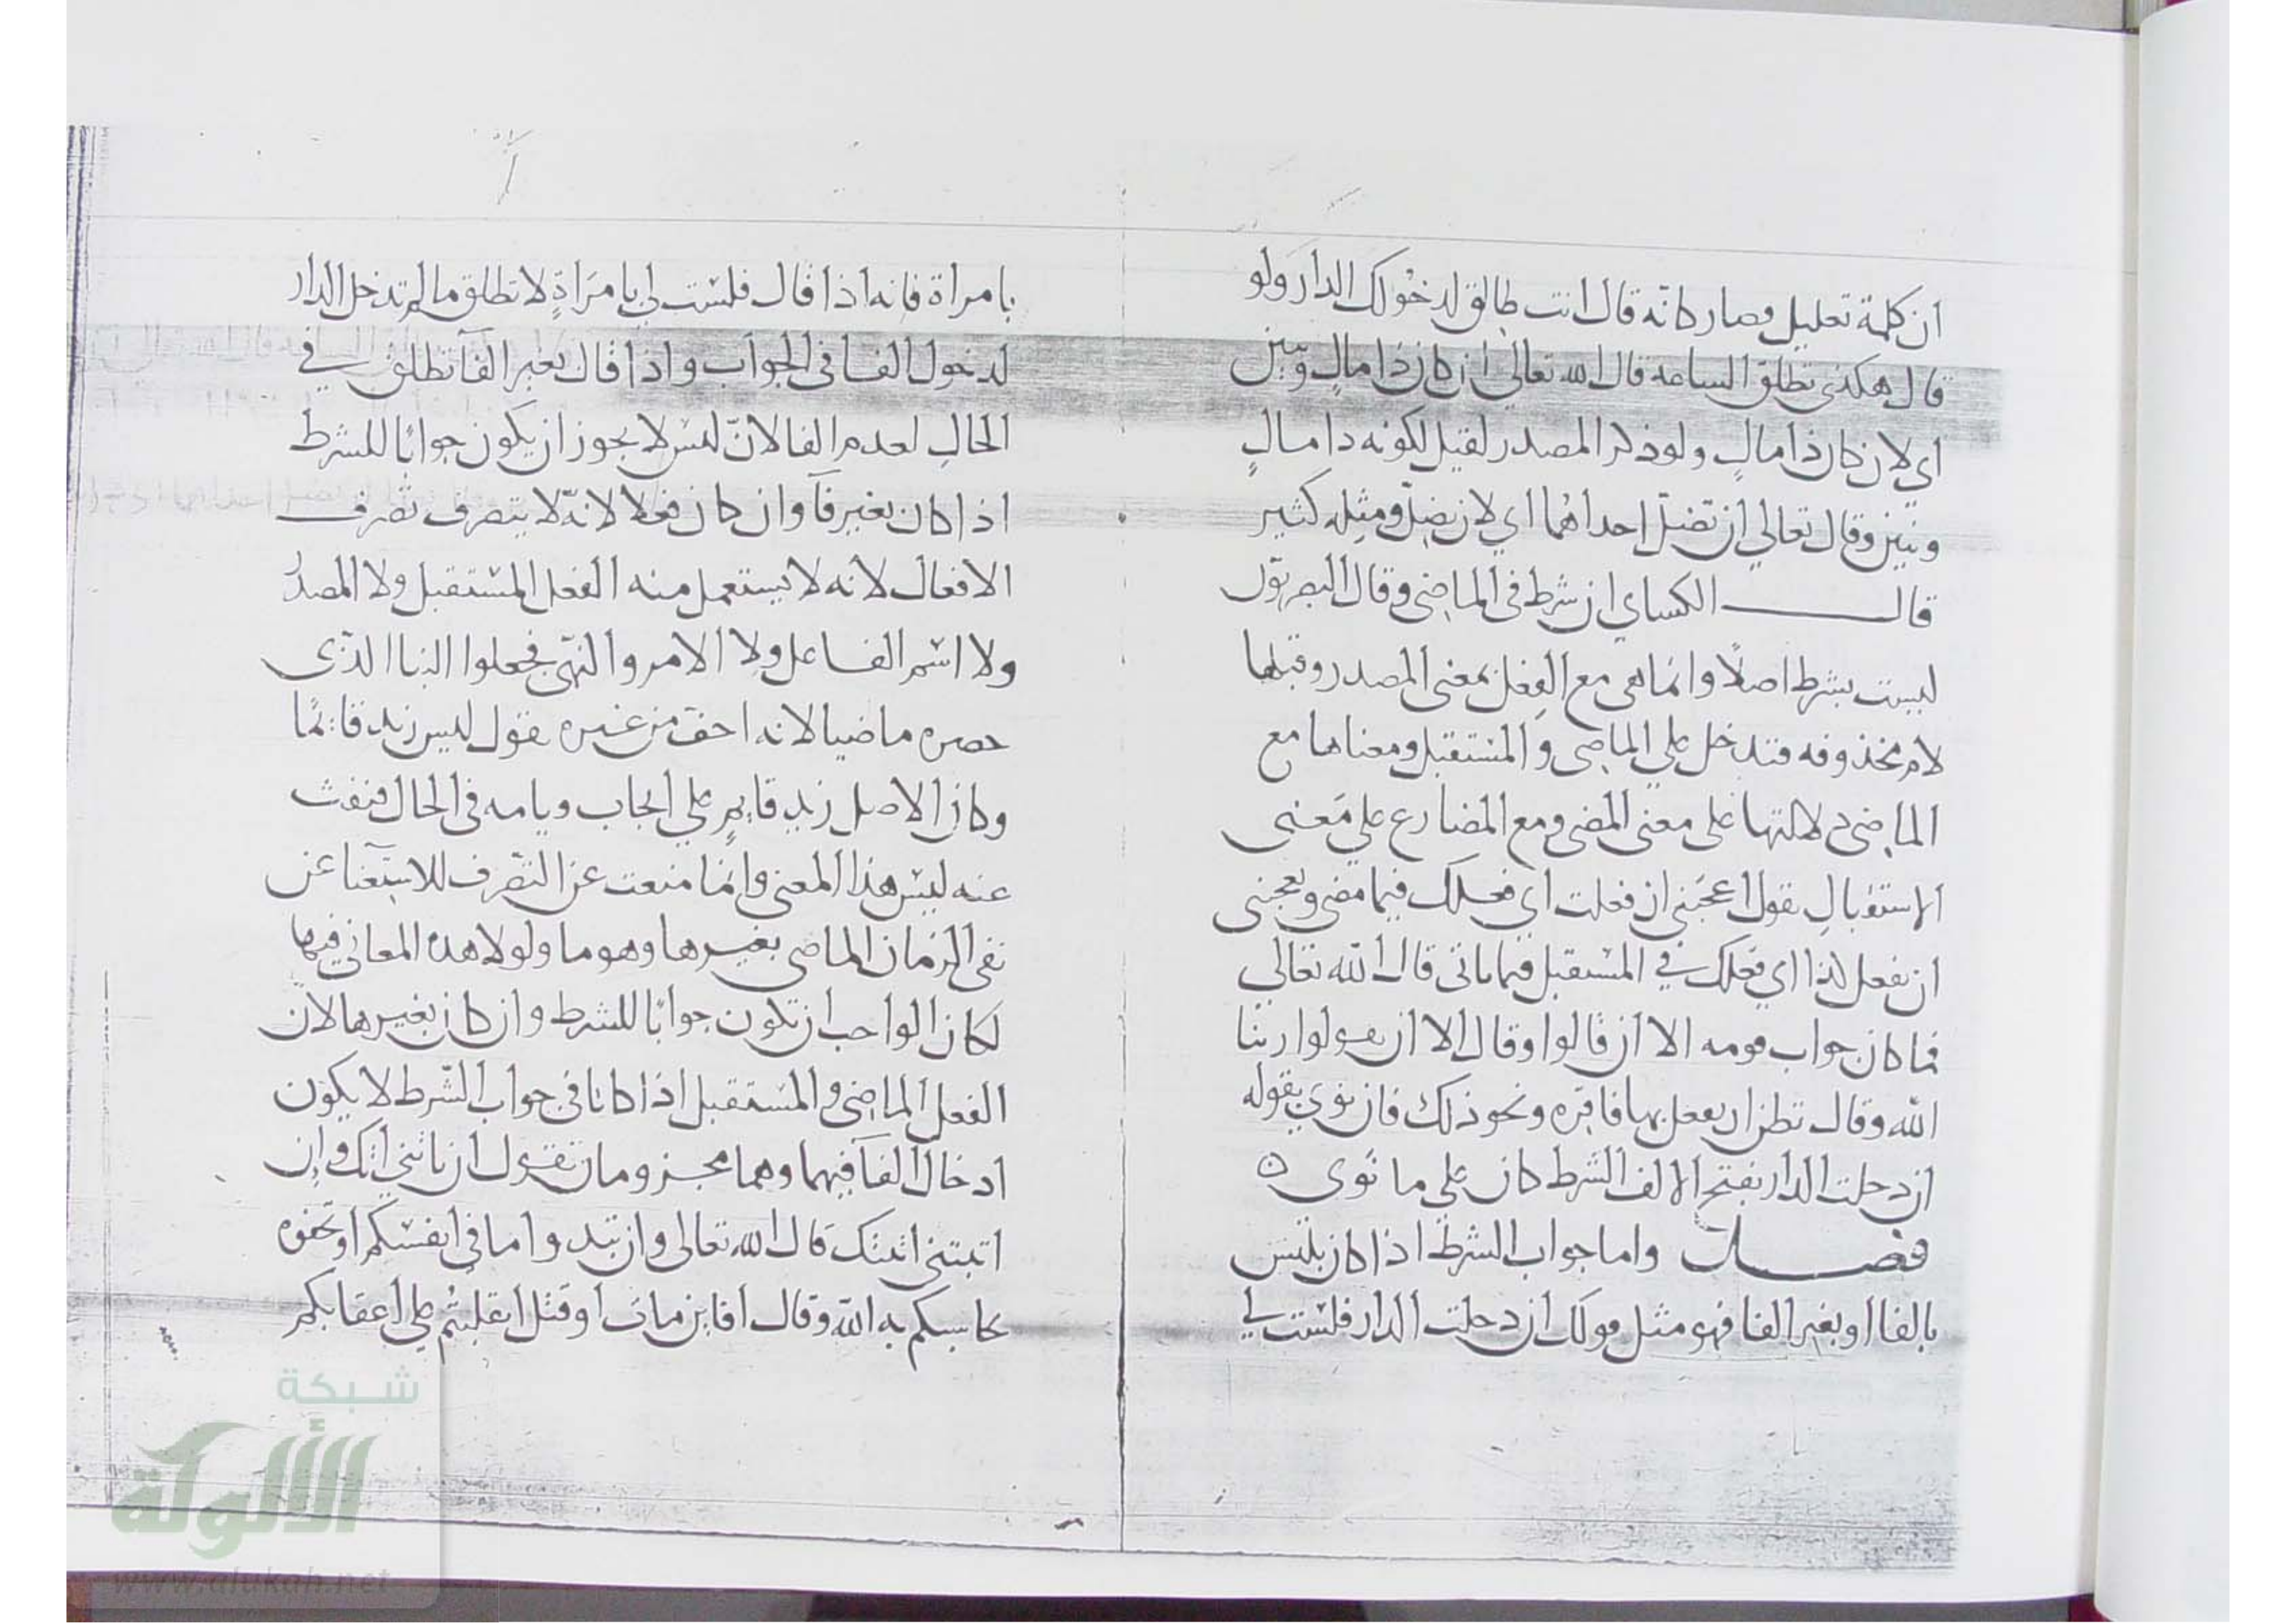 ان كلمة تعليل فصار كانه قال انت طالق لدخولك الدار ولو
قال هكذى تطلق الساعه قال الله تعالي ان كان ذا مالٍ وبنين
اي لان كان ذا مالٍ ولو ذكر المصدر لقيل لكونه ذا مالٍ
وبنين وقال تعالي ان تضلّ احداهما اي لان تضلّ ومثله كثير
قال الكساي ان شرط في الماضي وقال البصريون
ليست بشرط اصلًا وانما هي مع الفعل بمعنى المصدر وقبلها
لام محذوفه فتدخل علي الماضي والمستقبل ومعناها مع
الماضي دلالتها على معنى المضي ومع المضارع علي معنى
الاستقبالِ تقول اعجبني ان فعلت اي فعلك فيما مضى ويعجبني
ان تفعل كذا اي فعلك في المستقبل فيما ياتي قال الله تعالي
فما كان جواب قومه الا ان قالوا وقال الا ان يقولوا ربنا
الله وقال تظن ان يفعل بها فاقره ونحو ذلك فان نوى بقوله
ان دخلت الدار بفتح الالف الشرط كان علي ما نوى ه
فصل واما جواب الشرط اذا كان بليس
بالفا او بغير الفا فهو مثل قولك ان دخلت الدار فلست لي
بامراة فانه اذا قال فلست لي بامرَاةٍ لا تطلق ما لم تدخل الدار
لدخول الفا في الجواب واذا قال بغير الفا تطلق في
الحالِ لعدم الفا لانّ ليس لا يجوز ان يكون جوابًا للشرط
اذا كان بغير فآ وان كان فعلا لانه لا يتصرف تصرف
الافعال لانه لا يستعمل منه الفعل المستقبل ولا المصدر
ولا اسم الفاعل ولا الامر والنهي فجعلوا البنا الذي
حصره ماضيا لانه اخف من غيره تقول ليس زيد قائمًا
وكان الاصل زيد قايم علي ايجاب ويامه في الحال فنفت
عنه ليس هذا المعنى وانما منعت عن التصرف للاستغنا عن
نفي الزمان الماضي بغيرها وهو ما ولولا هذه المعاني فيها
لكان الواجب ان تكون جوابًا للشرط وان كان بغيرها لان
الفعل الماضي والمستقبل اذا كانا في جواب الشرط لا يكون
ادخال الفآ فيهما وهما مجزومان تقول ان تاتني اتك وان
اتيتني اتيتك قال الله تعالى وان تبدوا ما في انفسكم او تخفوه
يحاسبكم به الله وقال افاين مات او قتل انقلبتم علي اعقابكم
شبكة
الألوكة
www.alukah.net